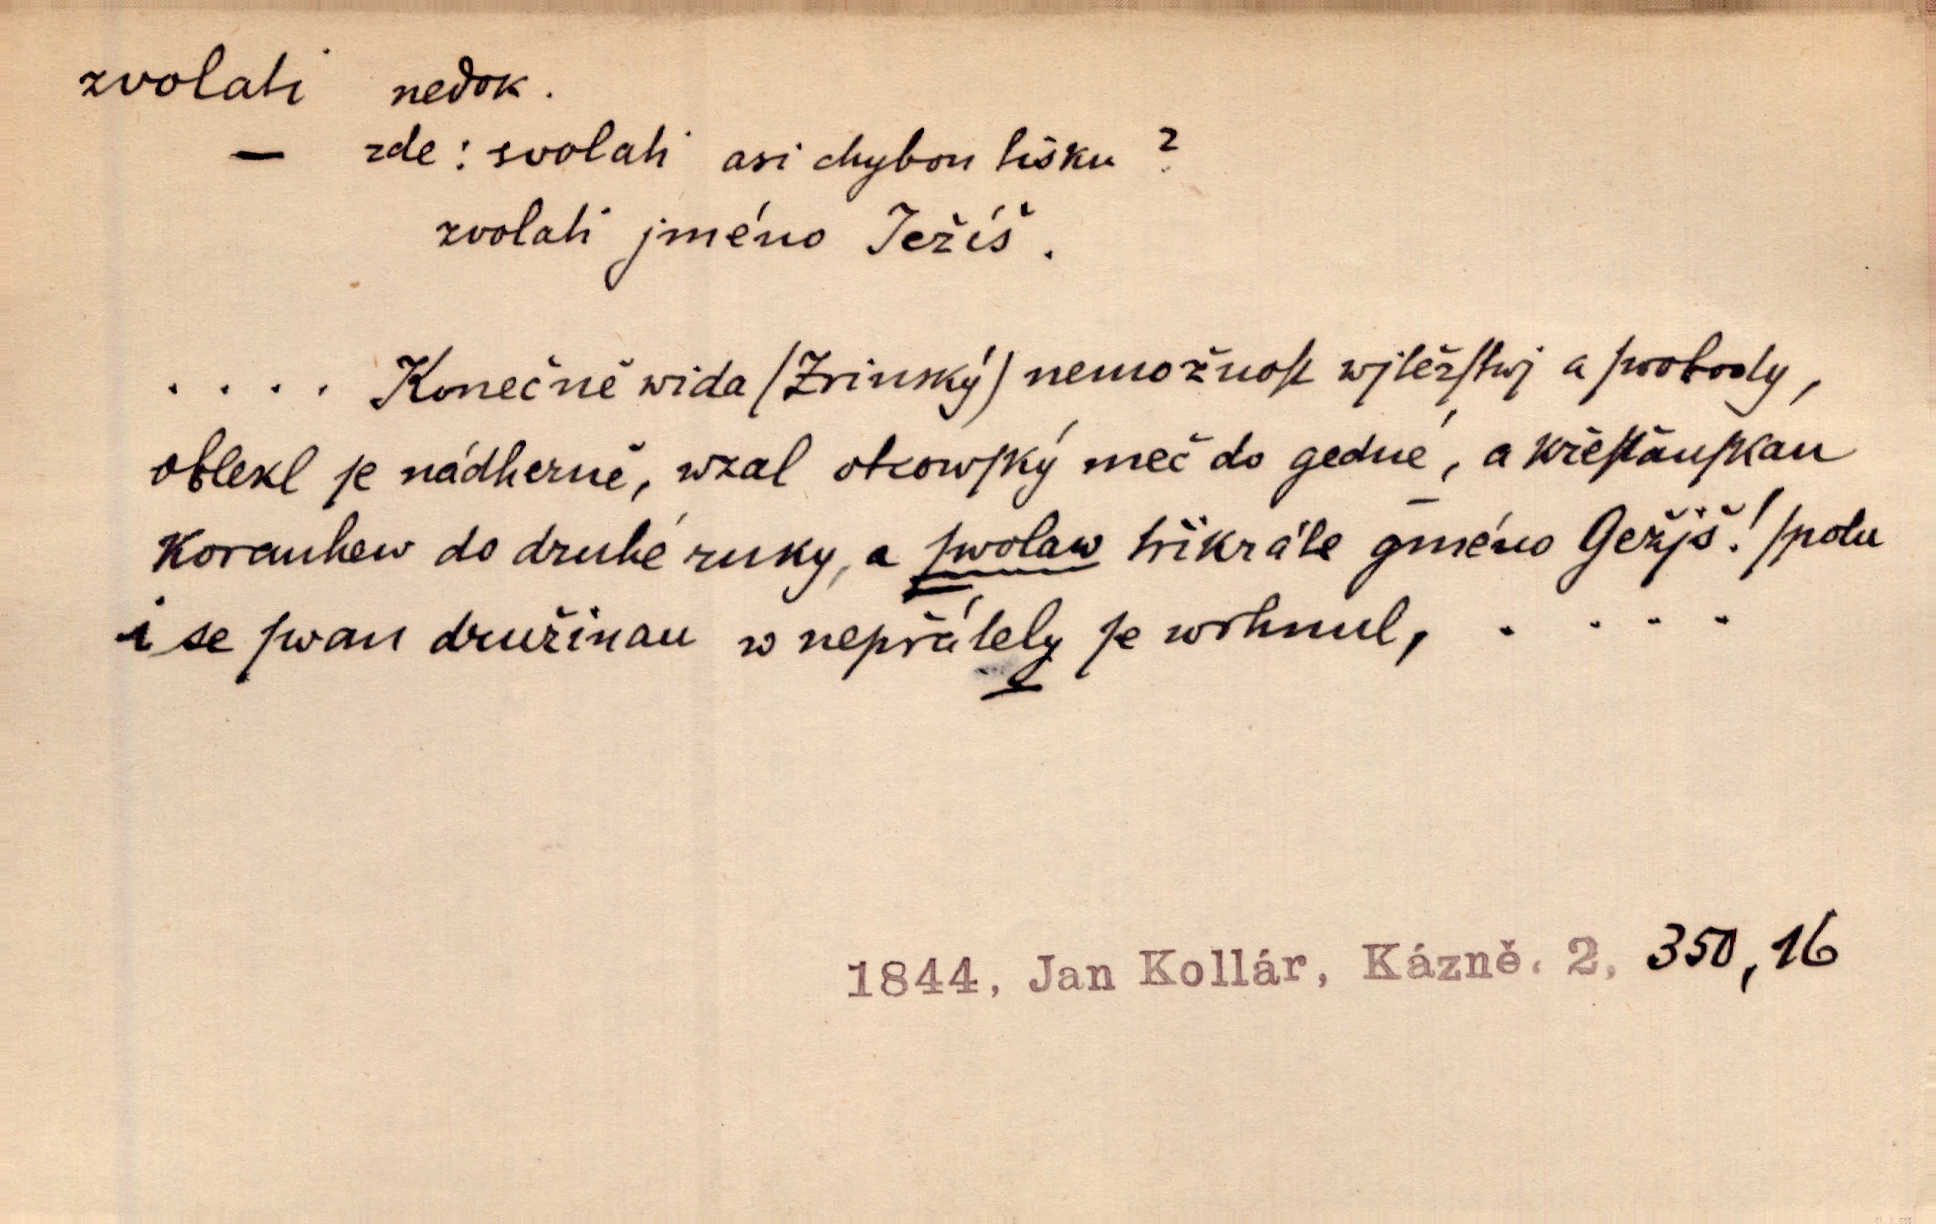 zvolati nedok.
— zde: svolati asi chybou tisku?
zvolati jméno Ježíš.
. . . . Konečně wida (Zrinský) nemožnoſt wjtězſtwj a ſwobody,
oblekl ſe nádherně, wzal otcowſký meč do gedné, a křeſťanſkau
korauhew do druhé ruky, a ſwolaw třikráte gméno Gežjš! ſpolu
i se ſwau družinau w nepřátely ſe wrhnul, . . . .
1844, Jan Kollár, Kázně. 2, 350,16